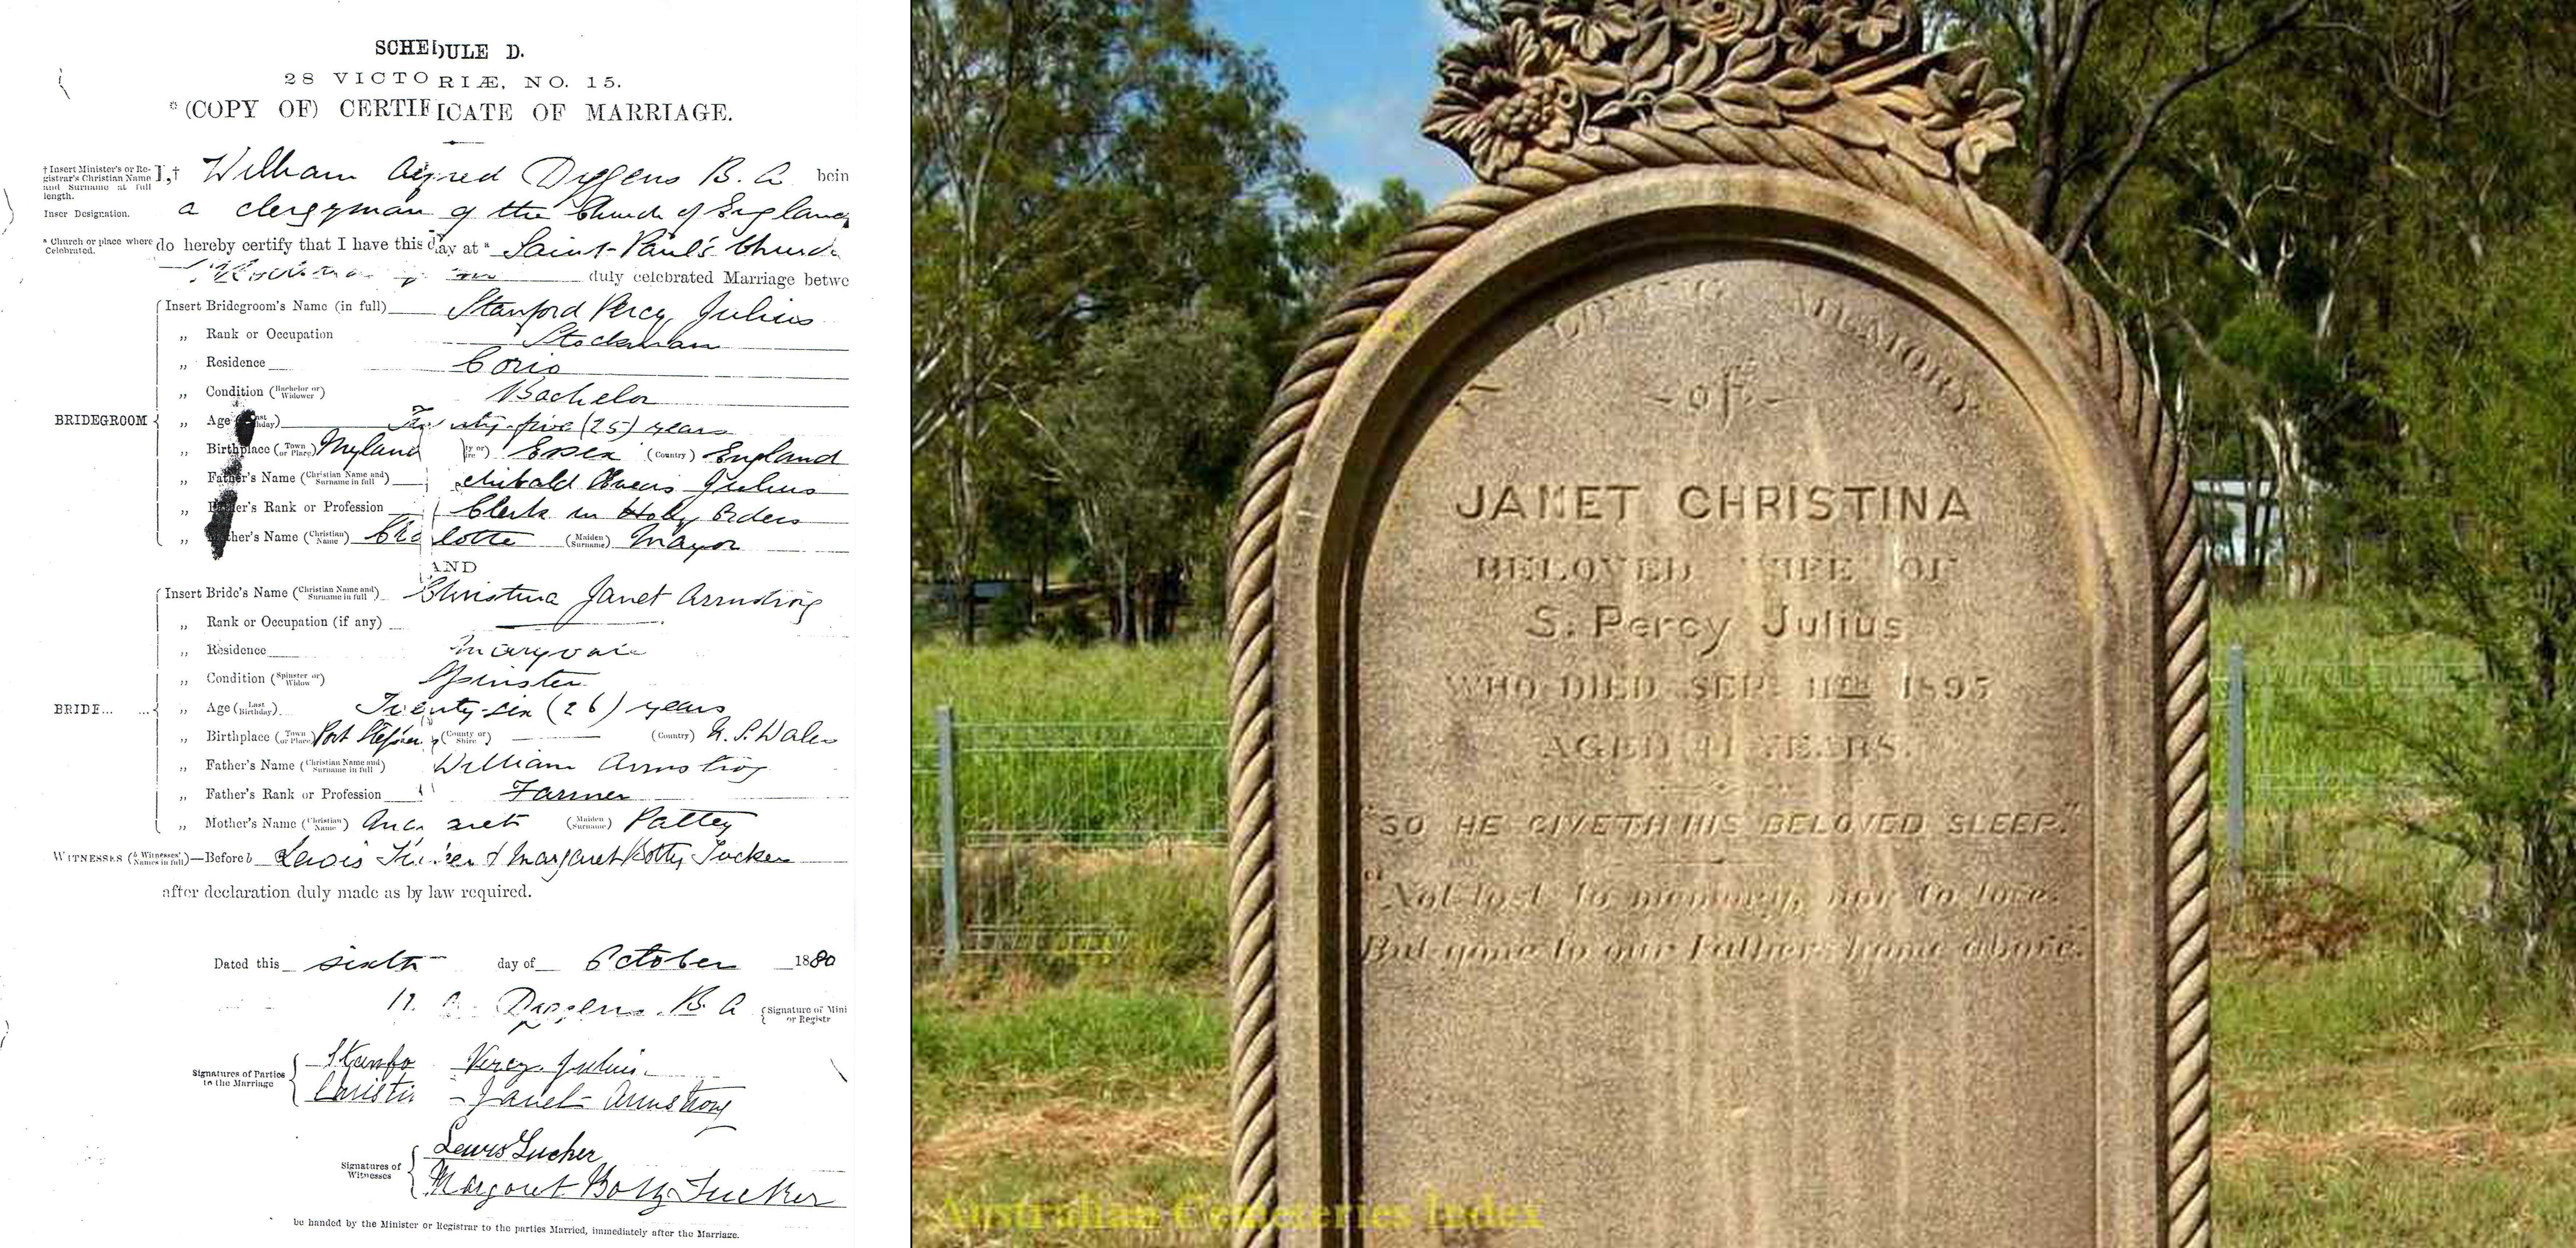 SCHEDULE D.
28 VICTORIÆ, NO. 15.
(COPY OF) CERTIFICATE OF MARRIAGE.
† Insert Minister's or Re-
gistrar's Christian Name
and Surname at full
length.
I,† William Alfred Diggens B. A. bein
Inser Designation.
a clergyman of the Church of England
* Church or place where
Celebrated.
do hereby certify that I have this day at * Saint Paul's Church
duly celebrated Marriage betwe
BRIDEGROOM
Insert Bridegroom's Name (in full) Stanford Percy Julius
„ Rank or Occupation Stockman
„ Residence Corio
„ Condition (Bachelor or Widower) Bachelor
„ Age Twenty-five (25) years
„ Birthplace (Town or Place) Myland Essex (Country) England
„ Father's Name (Christian Name and Surname in full) chibald Julius
„ Father's Rank or Profession Clerk in Holy Orders
„ Mother's Name (Christian Name) Charlotte (Maiden Surname) Mayor
AND
BRIDE...
Insert Bride's Name (Christian Name and Surname in full) Christina Janet Armstrong
„ Rank or Occupation (if any)
„ Residence Maryvale
„ Condition (Spinster or Widow) Spinster
„ Age (Last Birthday) Twenty-six (26) years
„ Birthplace (Town or Place) Port Stephens (County or Shire) (Country) N. S. Wales
„ Father's Name (Christian Name and Surname in full) William Armstrong
„ Father's Rank or Profession Farmer
„ Mother's Name (Christian Name) (Maiden Surname) Pattey
WITNESSES (& Witnesses' Names in full)—Before Lewis Tucker & Margaret Botty Tucker
after declaration duly made as by law required.
Dated this sixth day of October 1880
A Diggens B. A (Signature of Mini
or Registr
Signatures of Parties
to the Marriage
Stanfo Percy Julius
Christi Janet Armstrong
Signatures of
Witnesses
Lewis Tucker
Margaret Botty Tucker
be handed by the Minister or Registrar to the parties Married, immediately after the Marriage.
LOVING MEMORY
of
JANET CHRISTINA
BELOVED WIFE OF
S. Percy Julius
WHO DIED SEP. 11TH 1895
AGED 41 YEARS.
"SO HE GIVETH HIS BELOVED SLEEP."
"Not lost to memory, nor to love.
But gone to our Father's home above."
Australian Cemeteries Index